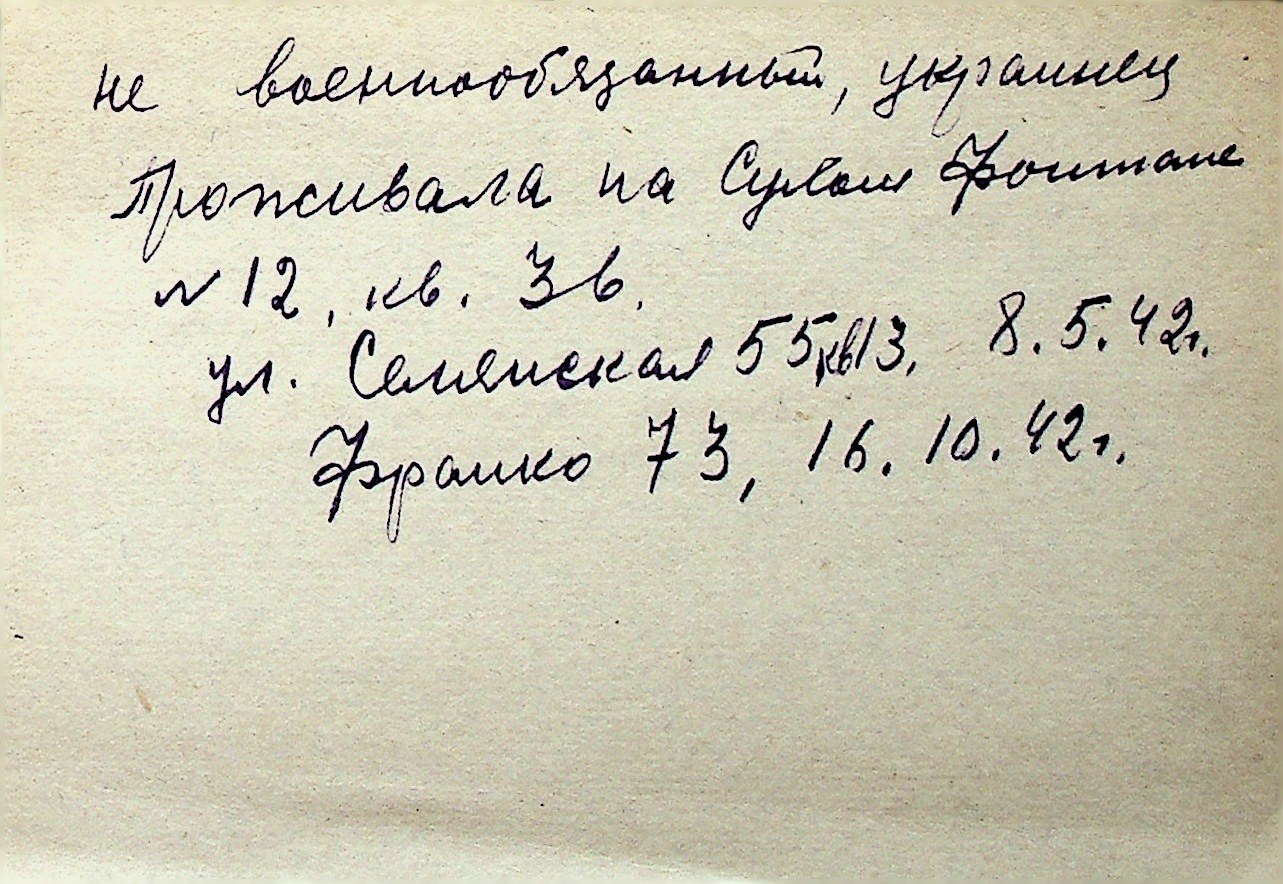 не военнообязанный, украинец
Проживала на Сухом Фонтане
№ 12, кв. 3в.
ул. Селянская 55 кв 13. 8.5.42г.
Франко 73, 16.10.42г.